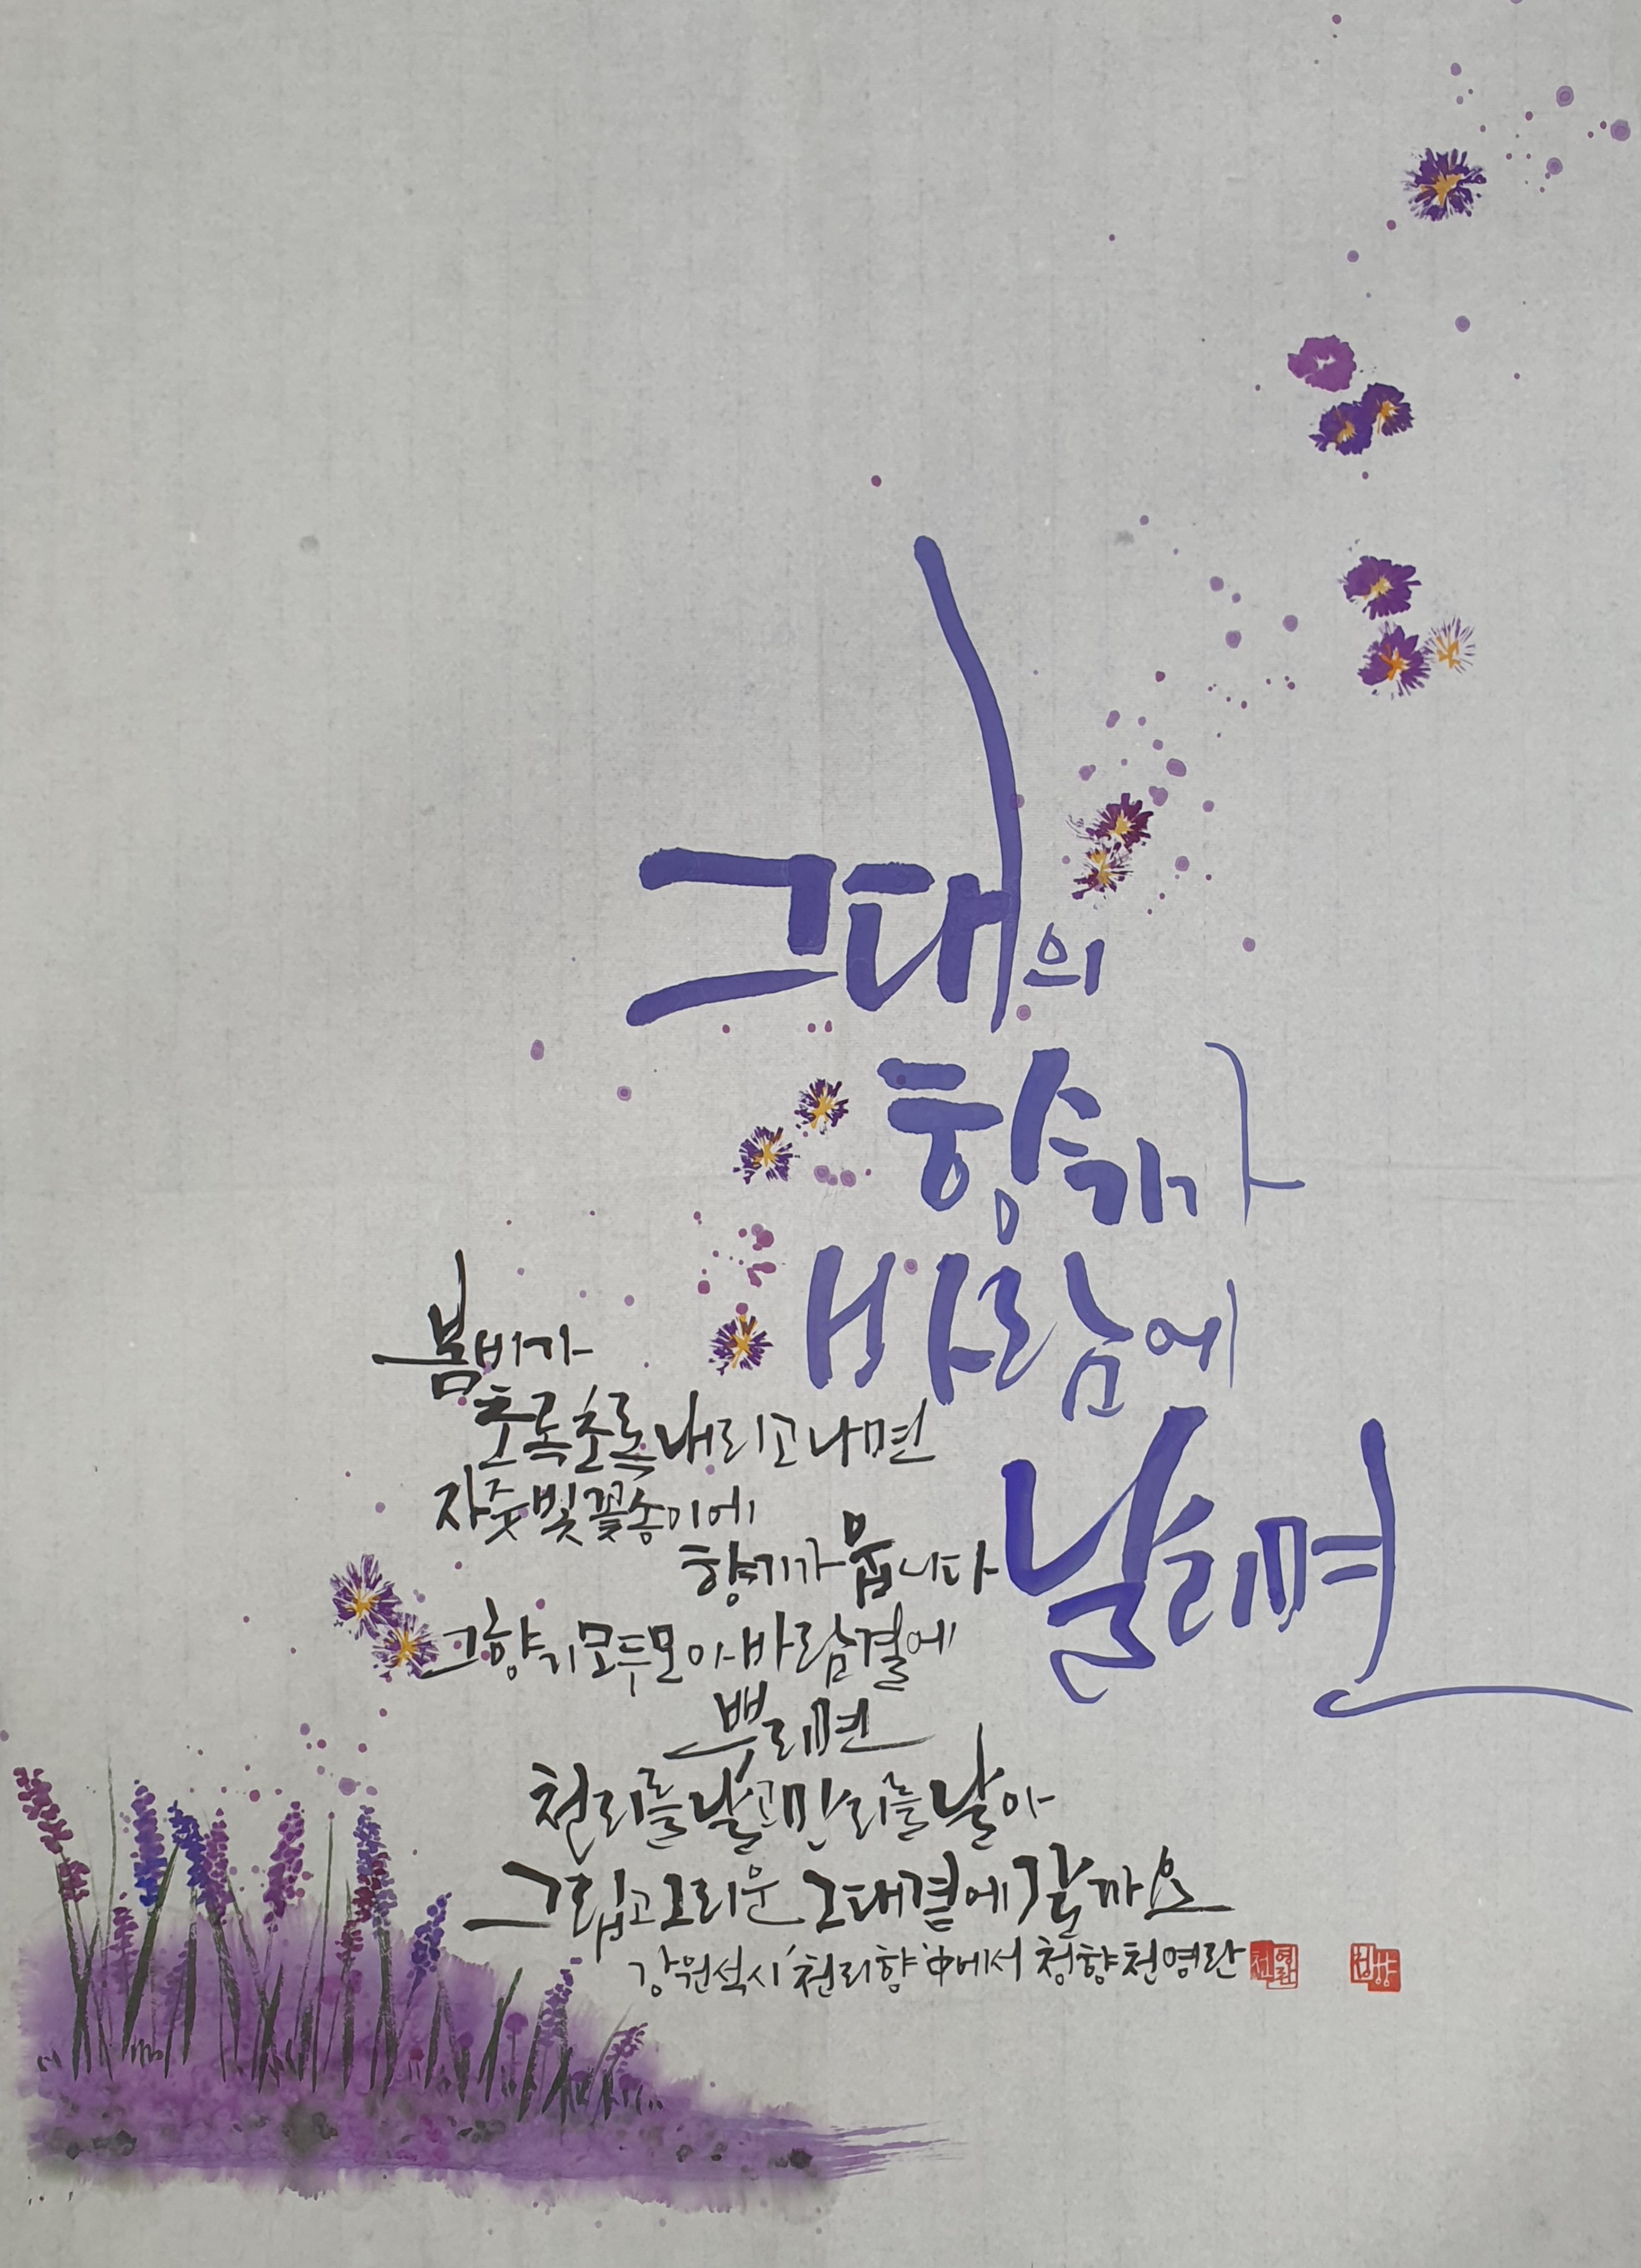 그대의
향기가
바람에
날리면
봄비가
초록초록 내리고 나면
자줏빛 꽃송이에
향기가 옵니다
그 향기 모두 모아 바람결에
뿌리면
천리를 날고 만리를 날아
그립고 그리운 그대 곁에 갈까요
강원석 시 '천리향' 中에서 청향 천영란
천영란